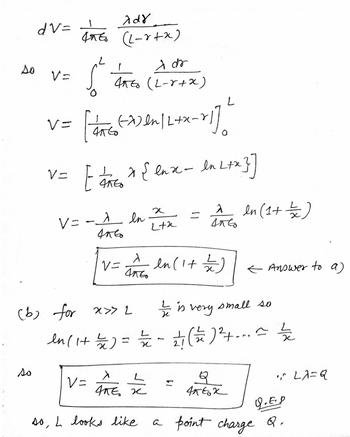 dV = 1/4πϵ₀ λdr/(L-r+x)
so V = ∫₀ᴸ 1/4πϵ₀ λ dr/(L-r+x)
V = [1/4πϵ₀ (-λ) ln|L+x-r|]₀ᴸ
V = [-1/4πϵ₀ λ {ln x - ln L+x}]
V = -λ/4πϵ₀ ln x/L+x = λ/4πϵ₀ ln(1+L/x)
V = λ/4πϵ₀ ln(1+L/x) ← Answer to a)
(b) for x>>L L/x is very small so
ln(1+L/x) = L/x - 1/2!(L/x)²+... ≃ L/x
so V = λ/4πϵ₀ L/x = Q/4πϵ₀x ∵ Lλ=Q
Q.E.D
so, L looks like a point charge Q.